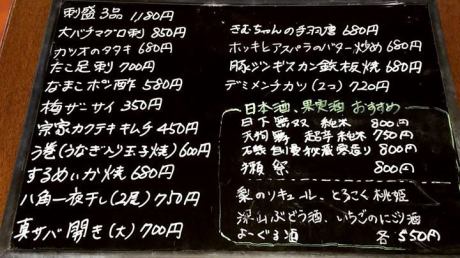 刺盛3品 1180円
大バチマグロ刺 850円
カツオのタタキ 680円
たこ足刺 700円
なまこポン酢 580円
梅ザーサイ 350円
宗家カクテキキムチ 450円
う巻(うなぎ入り玉子焼) 600円
するめいか焼 680円
八角一夜干し(2尾) 750円
真サバ開き(大) 700円
きむちゃんの手羽唐 680円
ホッキとアスパラのバター炒め 680円
豚ジンギスカン鉄板焼 680円
デミメンチカツ(2コ) 720円
日本酒、果実酒 おすすめ
日下無双 純米 800円
天狗舞 純米 750円
磯自慢 秘蔵寒造り 800円
獺祭 800円
梨のリキュール、とろこく桃姫
深山ぶどう酒、いちごのにごり酒
よーぐる酒 各550円